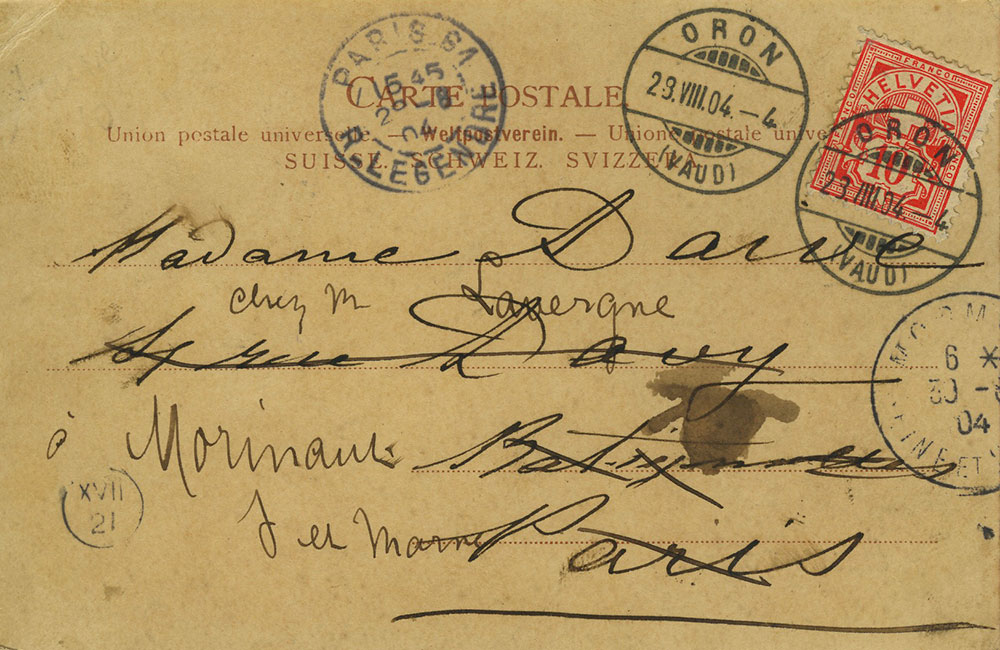 CARTE POSTALE.
Union postale universelle. — Weltpostverein. — Unione postale univer
SUISSE. SCHWEIZ. SVIZZERA.
PARIS 61
15 45
04
R. LEGENDRE
ORON
29.VIII.04.–4
(VAUD)
FRANCO
HELVETIA
FRANCO
10
ORON
29.VIII.04.–4
(VAUD)
Madame Darve
chez M Lavergne
rue Davy
à
Batignolles
S et Marne Paris
MORM
6 *
30 -8
04
INE ET
XVII
21